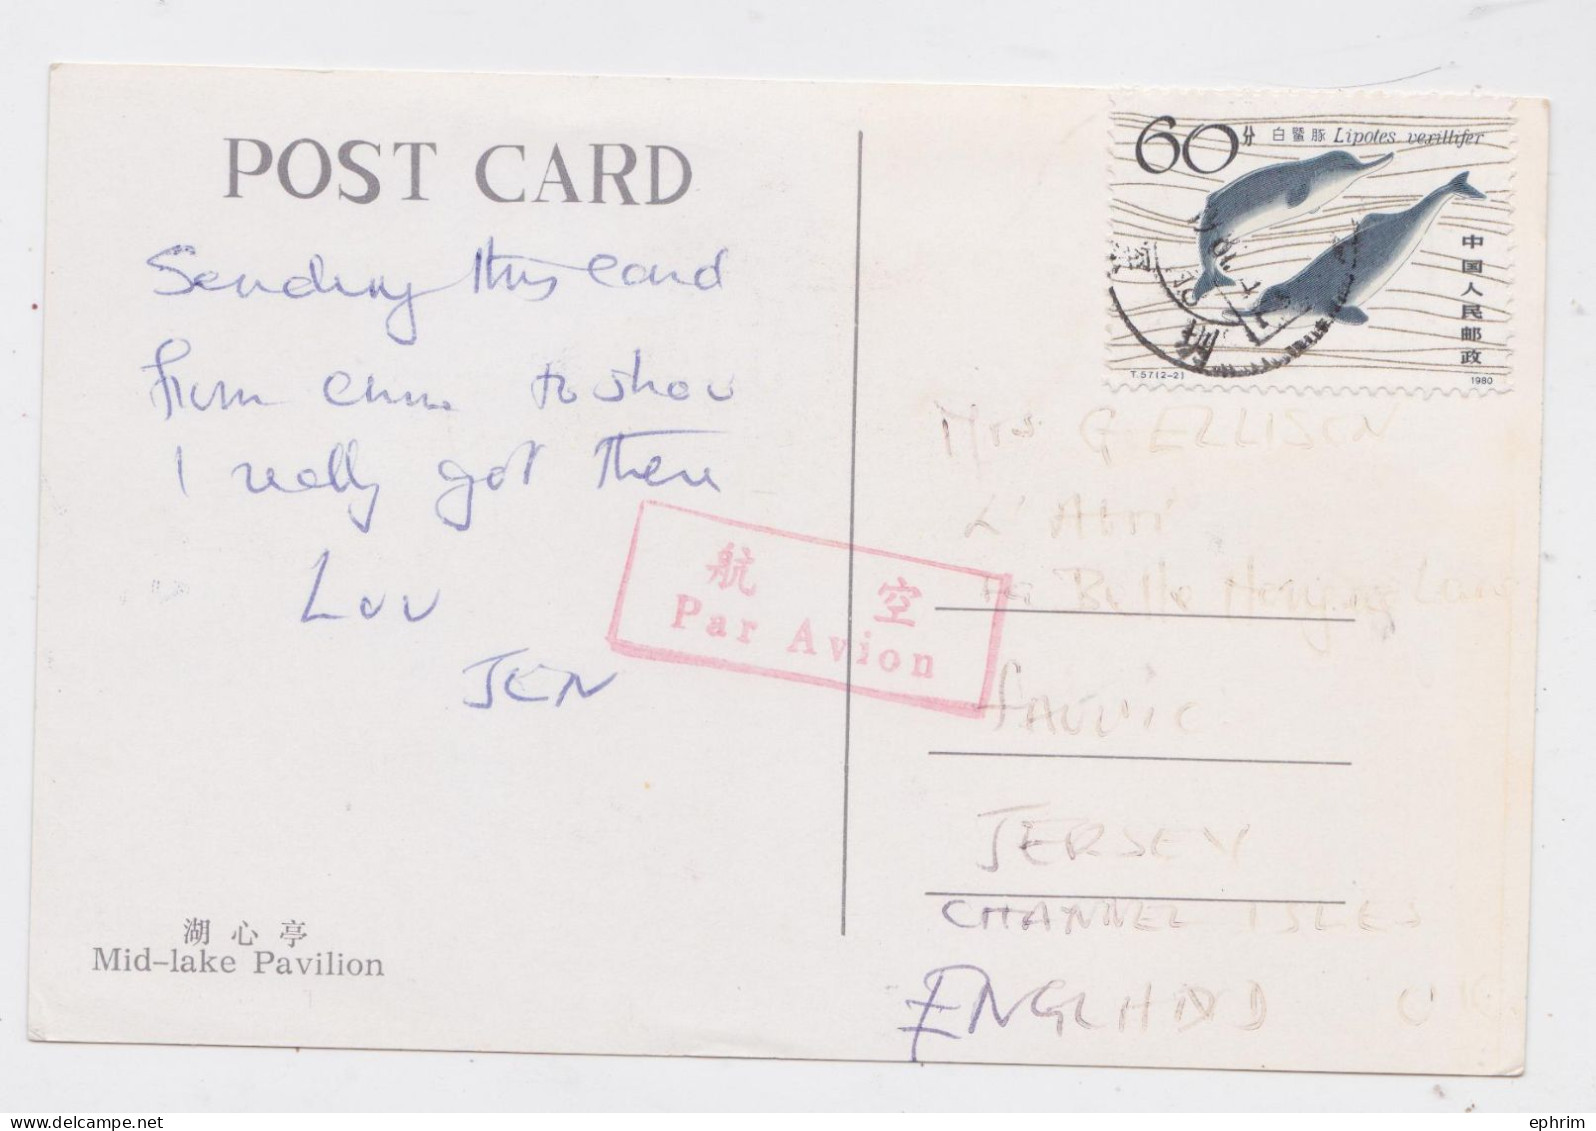 POST CARD
Sending this card
from China to show
I really got there
Luv
JEN
湖心亭
Mid-lake Pavilion
航空
Par Avion
60分 白鱀豚 Lipotes vexillifer
中国人民邮政
T.57(2-2) 1980
Mrs G ELLISON
L'Abri
JERSEY
CHANNEL ISLES
ENGLAND UK
www.delcampe.net
ephrim